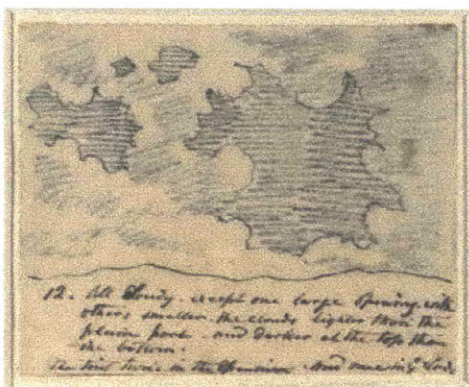 12. All Cloudy - except one large opening, with
others smaller. the clouds lighter than the
plain part - and darker at the top than
the bottom.
The tint twice in the openings - and once in yͤ